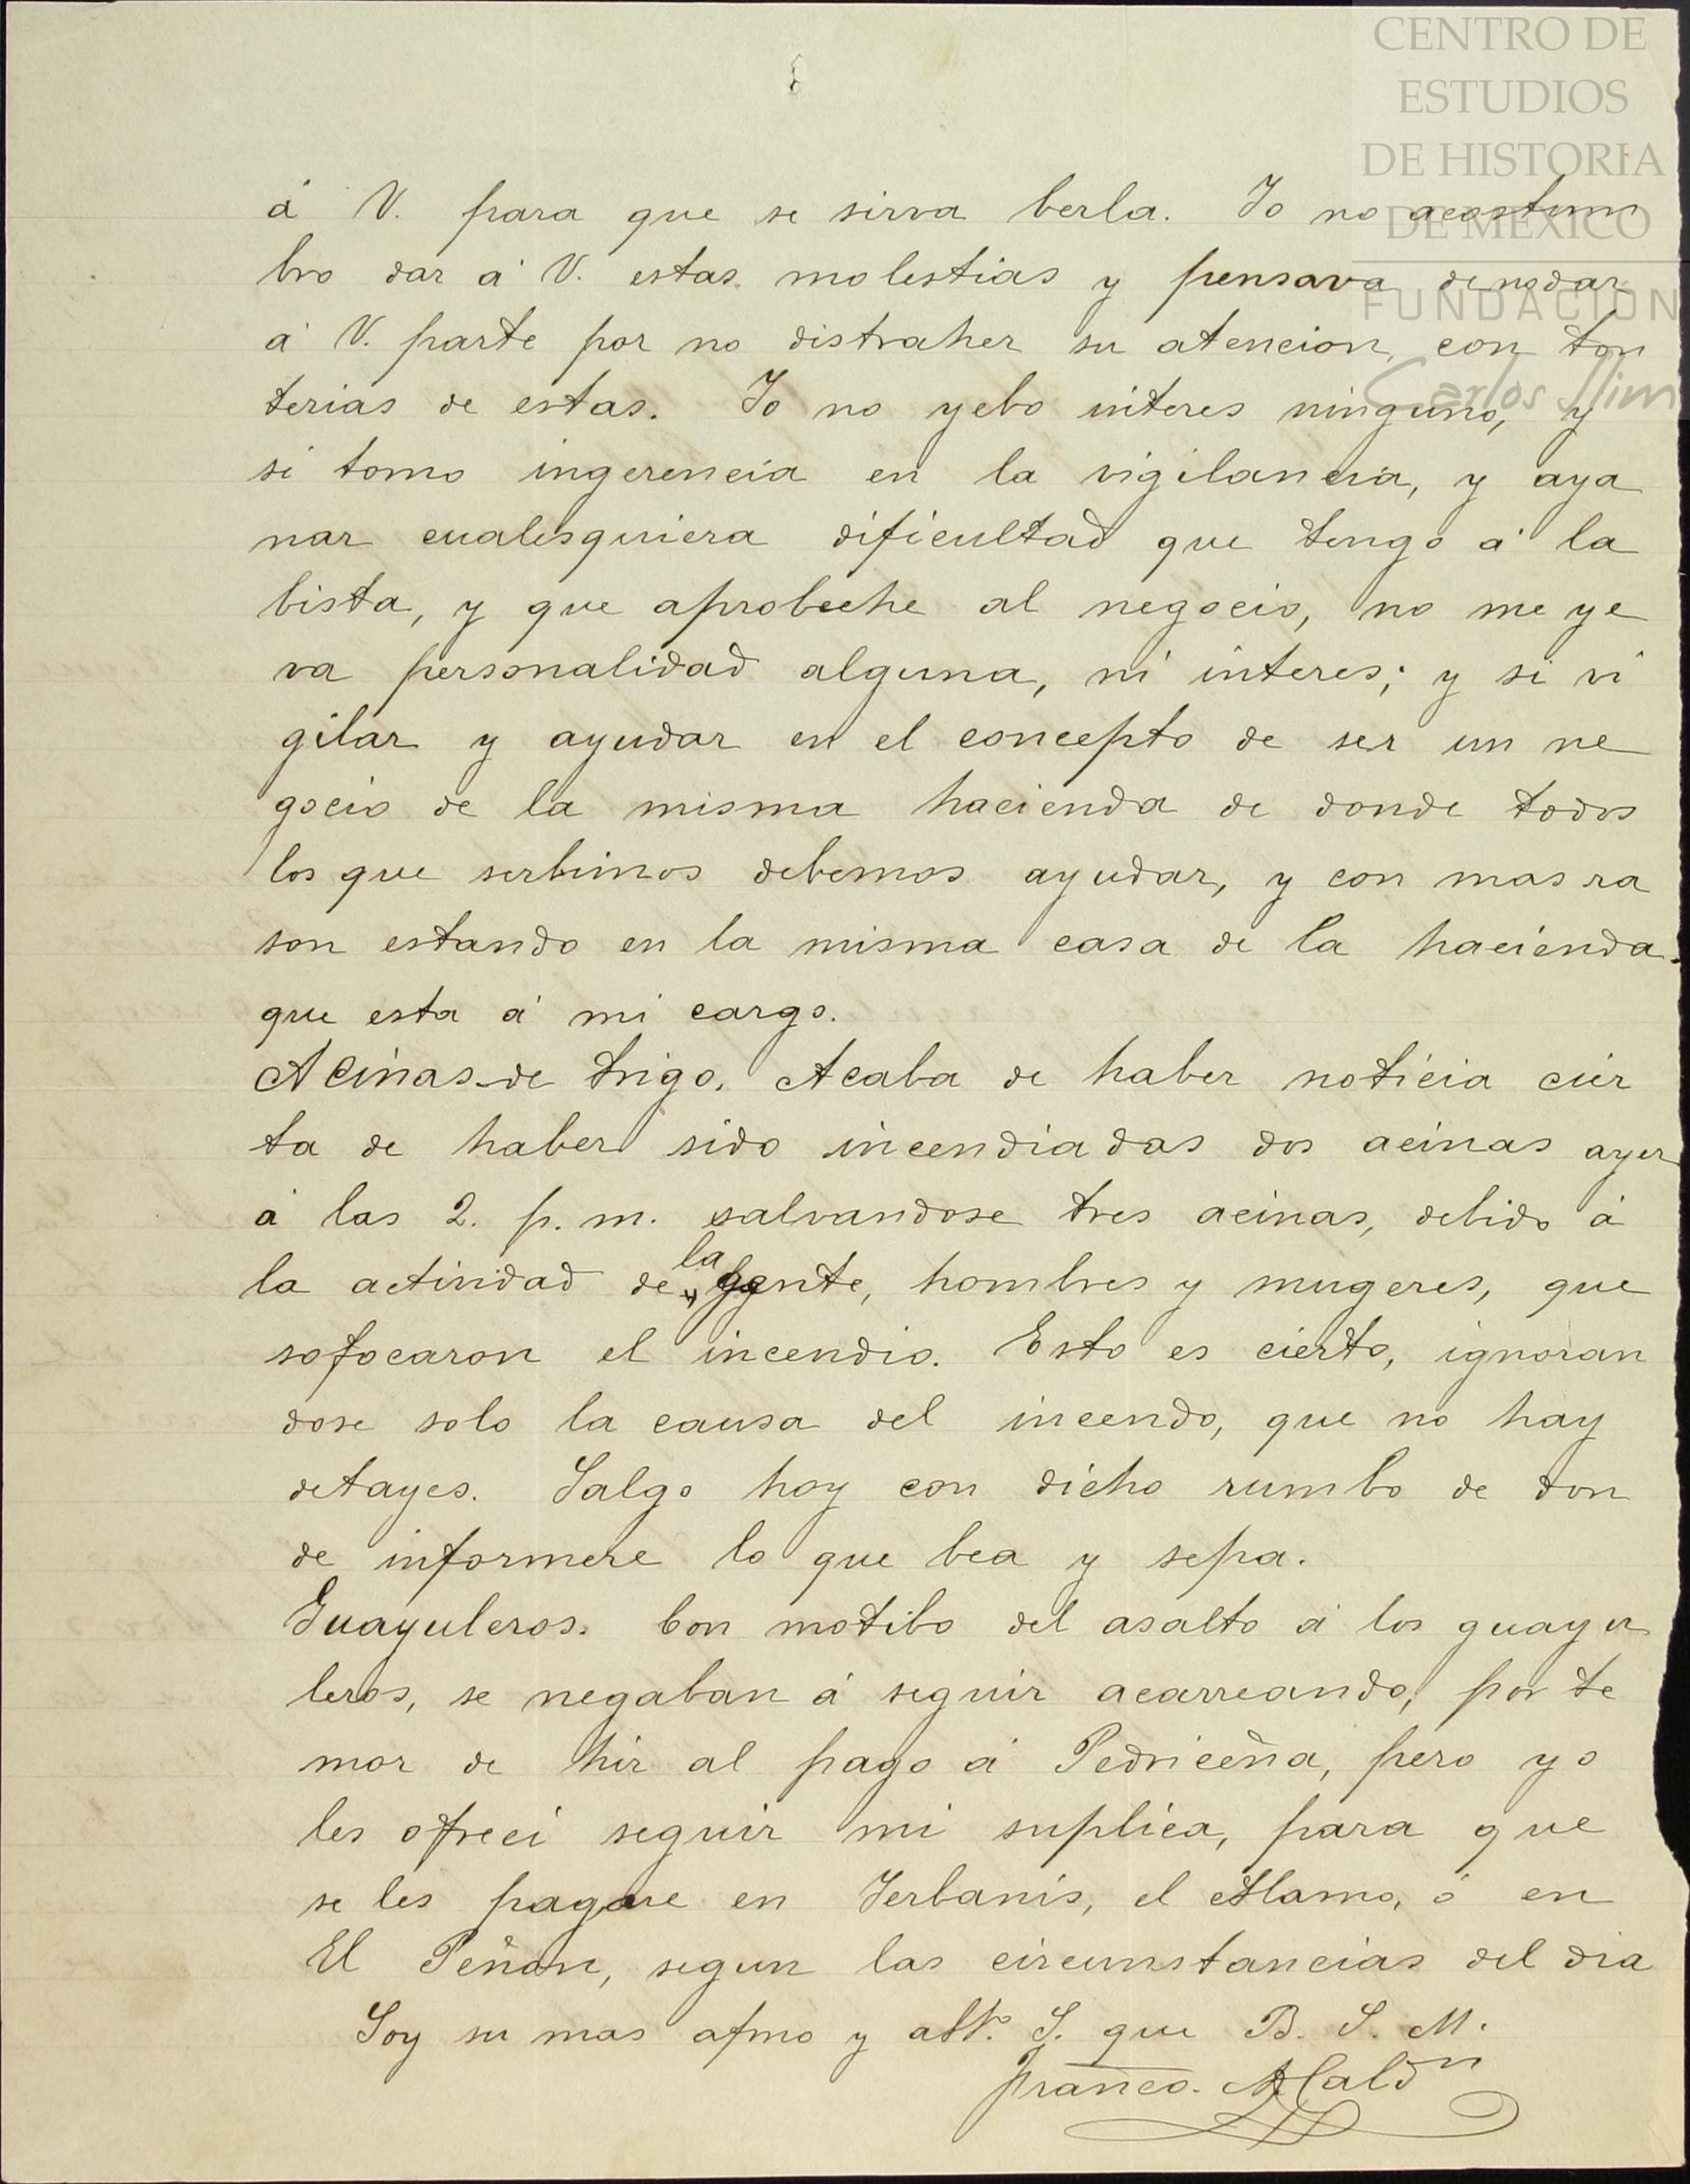 CENTRO DE
ESTUDIOS
DE HISTORIA
DE MÉXICO
FUNDACION
Carlos Slim
á V. para que se sirva berla. Yo no acostum
bro dar á V. estas molestias y pensava de no dar
á V. parte por no distraher su atencion, con ton
terias de estas. Yo no yebo interes ninguno, y
si tomo ingerencia en la vigilancia, y aya
nar cualesquiera dificultad que tengo á la
bista, y que aprobeche al negocio, no me ye
va personalidad alguna, ni interes; y si vi
gilar y ayudar en el concepto de ser un ne
gocio de la misma hacienda de donde todos
los que serbimos debemos ayudar, y con mas ra
son estando en la misma casa de la hacienda.
que esta á mi cargo.
Acinas de trigo. Acaba de haber noticia cier
ta de haber sido incendiadas dos acinas ayer
á las 2. p. m. salvandose tres acinas, debido á
la actividad de la gente, hombres y mugeres, que
sofocaron el incendio. Esto es cierto, ignoran
dose solo la causa del incendo, que no hay
detayes. Salgo hoy con dicho rumbo de don
de informere lo que bea y sepa.
Guayuleros. Con motibo del asalto á los guayu
leros, se negaban á seguir acarreando, por te
mor de hir al pago á Pedriceña, pero yo
les ofreci seguir mi suplica, para que
se les pagare en Yerbanis, el Alamo, ó en
El Peñon, segun las circunstancias del dia
Soy su mas afmo y att. S. que B. S. M.
Franco. A Caldn